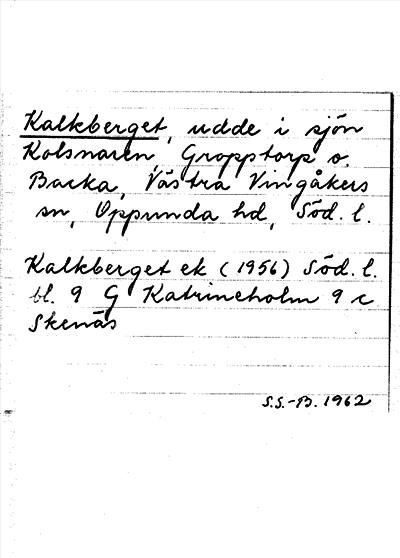 Kalkberget, udde i sjön
Kolsnaren, Gropptorp o.
Backa, Västra Vingåkers
sn, Oppunda hd, Söd. l.
Kalkberget ek (1956) Söd. l.
bl. 9 G Katrineholm 9 c
Skenäs
S.S.-B. 1962